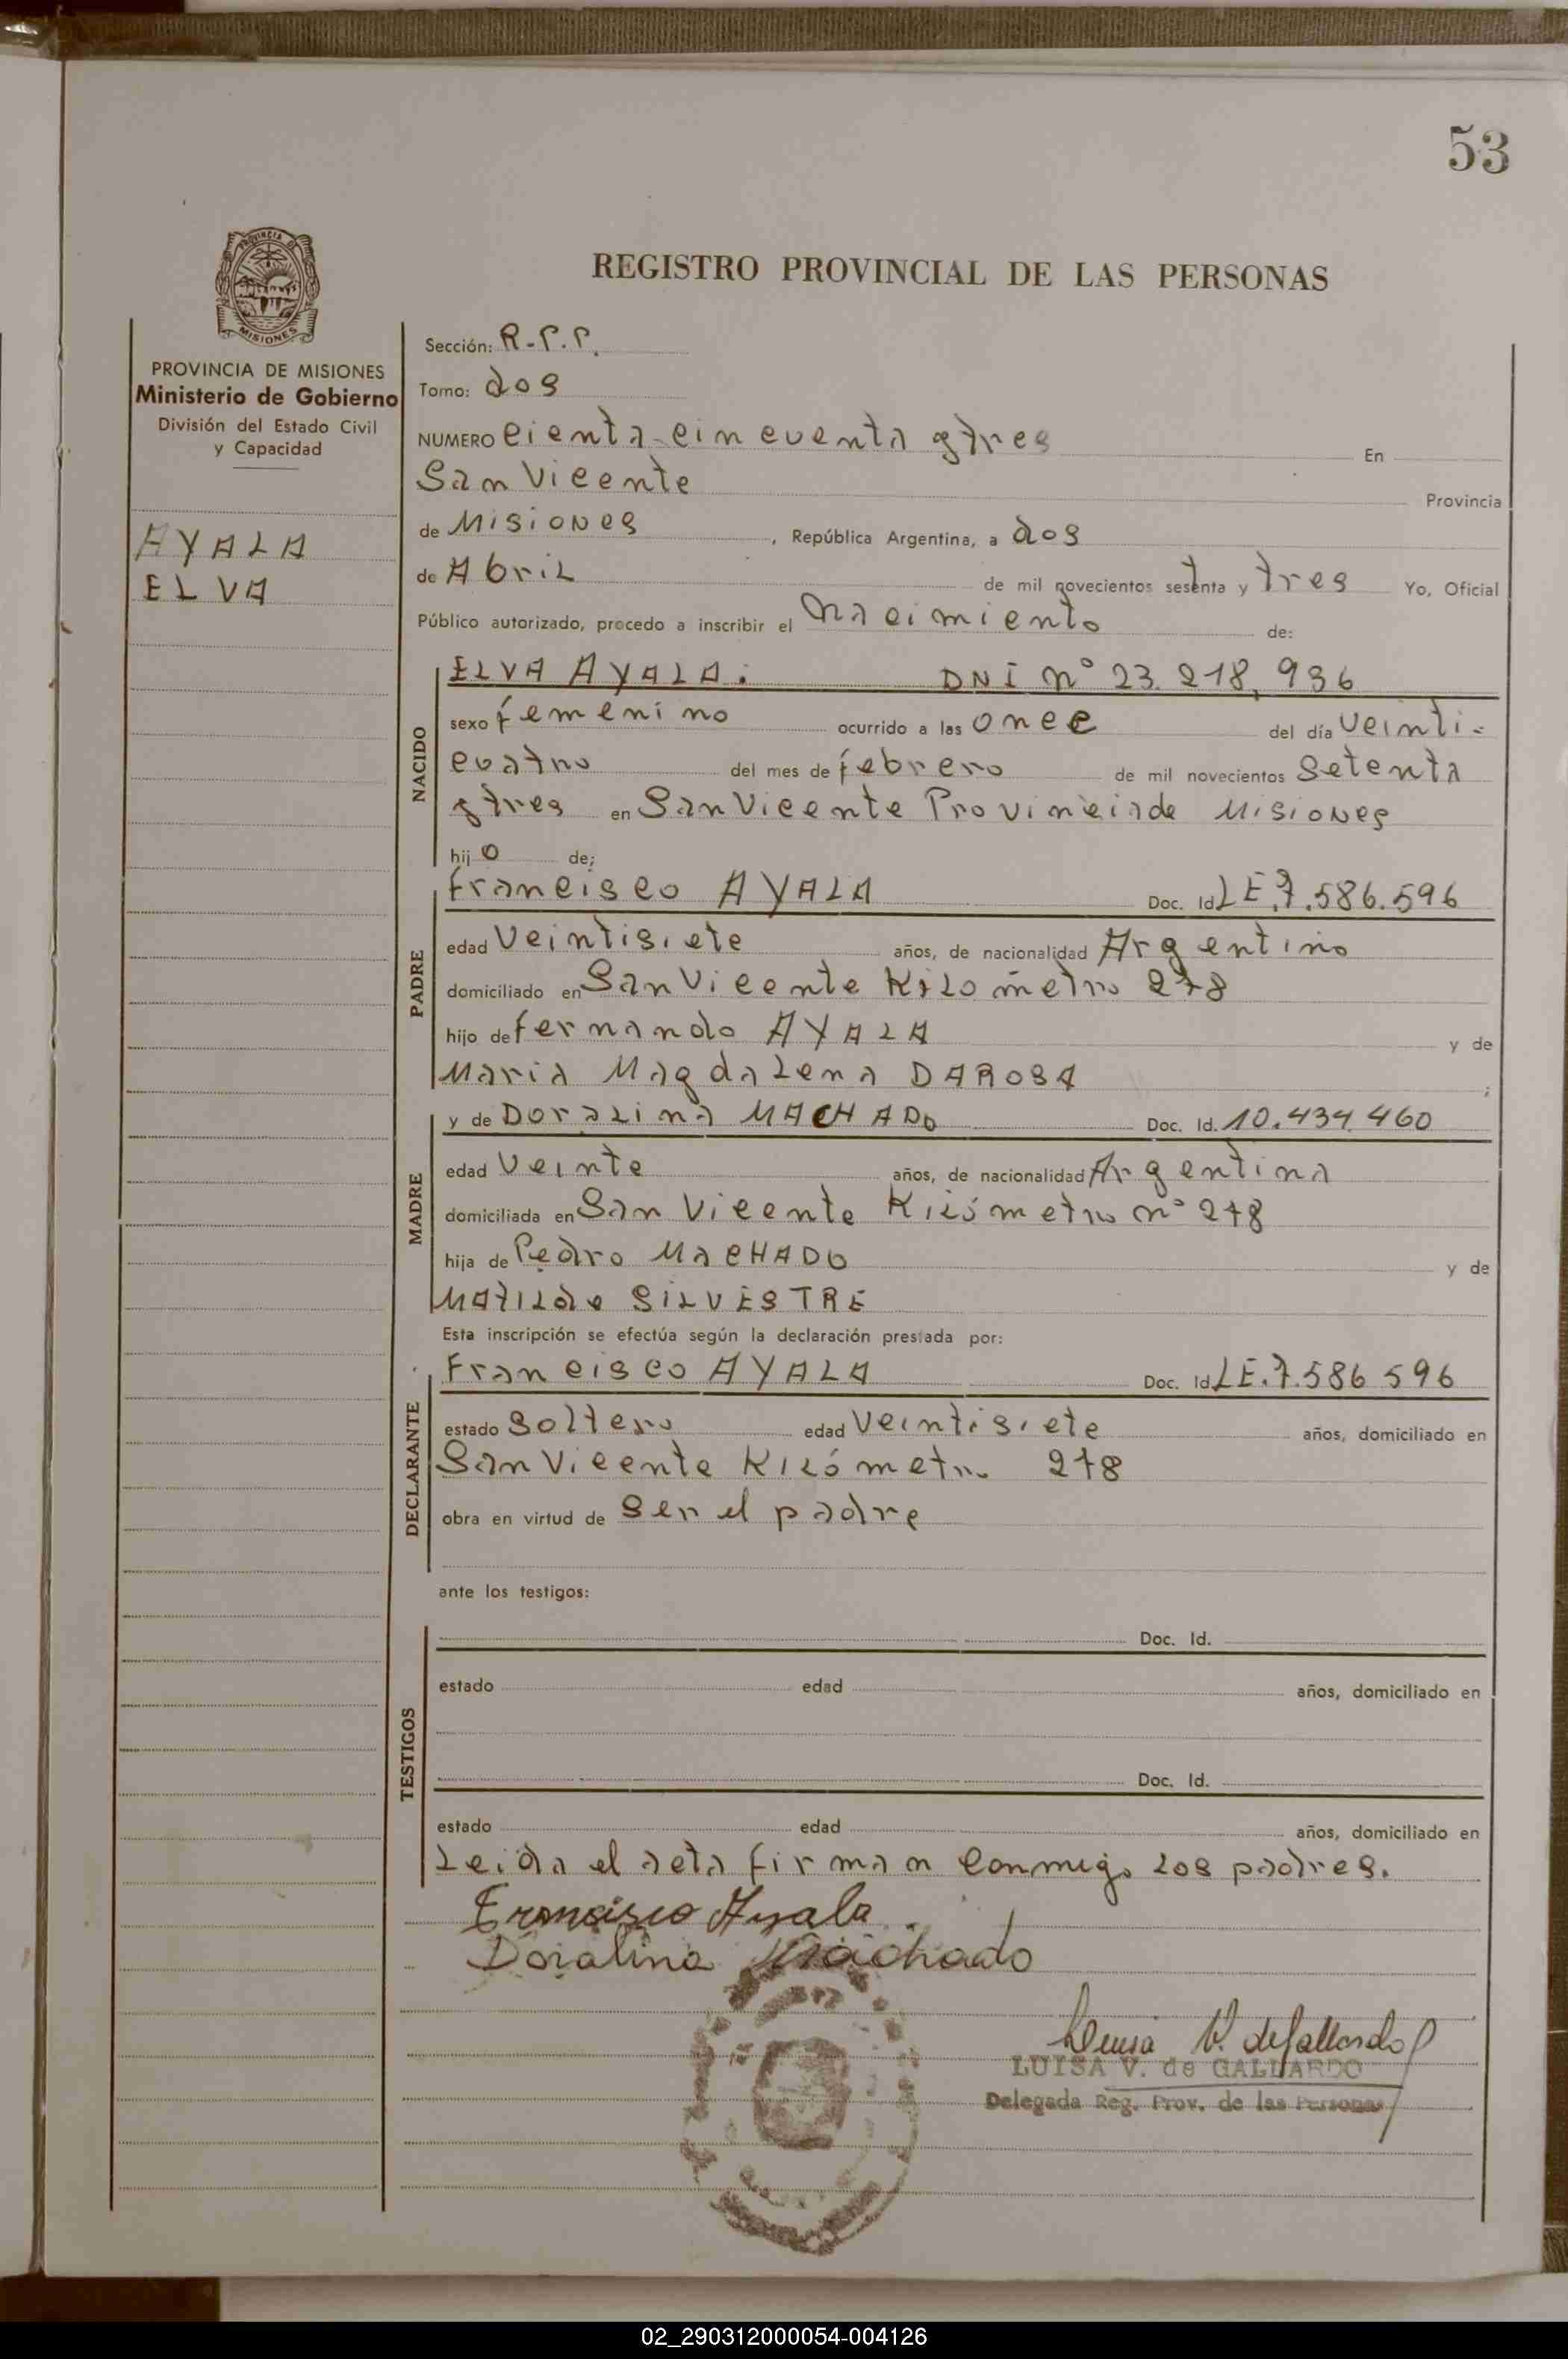 53
REGISTRO PROVINCIAL DE LAS PERSONAS
PROVINCIA DE
MISIONES
PROVINCIA DE MISIONES
Ministerio de Gobierno
División del Estado Civil
y Capacidad
AYALA
ELVA
Sección: R.P.P.
Tomo: dos
NUMERO cienta cincuenta y tres En
San Vicente Provincia
de Misiones, República Argentina, a dos
de Abril de mil novecientos sesenta y tres Yo, Oficial
Público autorizado, procedo a inscribir el Nacimiento de:
NACIDO
ELVA AYALA. DNI nº 23.218.936
sexo femenino ocurrido a las once del día veinti-
cuatro del mes de febrero de mil novecientos setenta
y tres en San Vicente Provincia de Misiones
hijo de;
PADRE
Francisco AYALA Doc. Id LE.7.586.596
edad Veintisiete años, de nacionalidad Argentino
domiciliado en San Vicente Kilómetro 278
hijo de fernando AYALA y de
Maria Magdalena DAROSA ;
MADRE
y de Doralina MACHADO Doc. Id. 10.434.460
edad Veinte años, de nacionalidad Argentina
domiciliada en San Vicente Kilómetro nº 278
hija de Pedro MACHADO y de
Matilde SILVESTRE
Esta inscripción se efectúa según la declaración prestada por:
DECLARANTE
Francisco AYALA Doc. Id LE.7.586 596
estado Soltero edad Veintisiete años, domiciliado en
San Vicente Kilómetro 278
obra en virtud de Ser el padre
ante los testigos:
TESTIGOS
Doc. Id.
estado edad años, domiciliado en
Doc. Id.
estado edad años, domiciliado en
Leida el acta firman conmigo los padres.
Francisco Ayala
Doralina Machado
Luisa V. de Gallardo
LUISA V. de GALLARDO
Delegada Reg. Prov. de las Personas
02_290312000054-004126